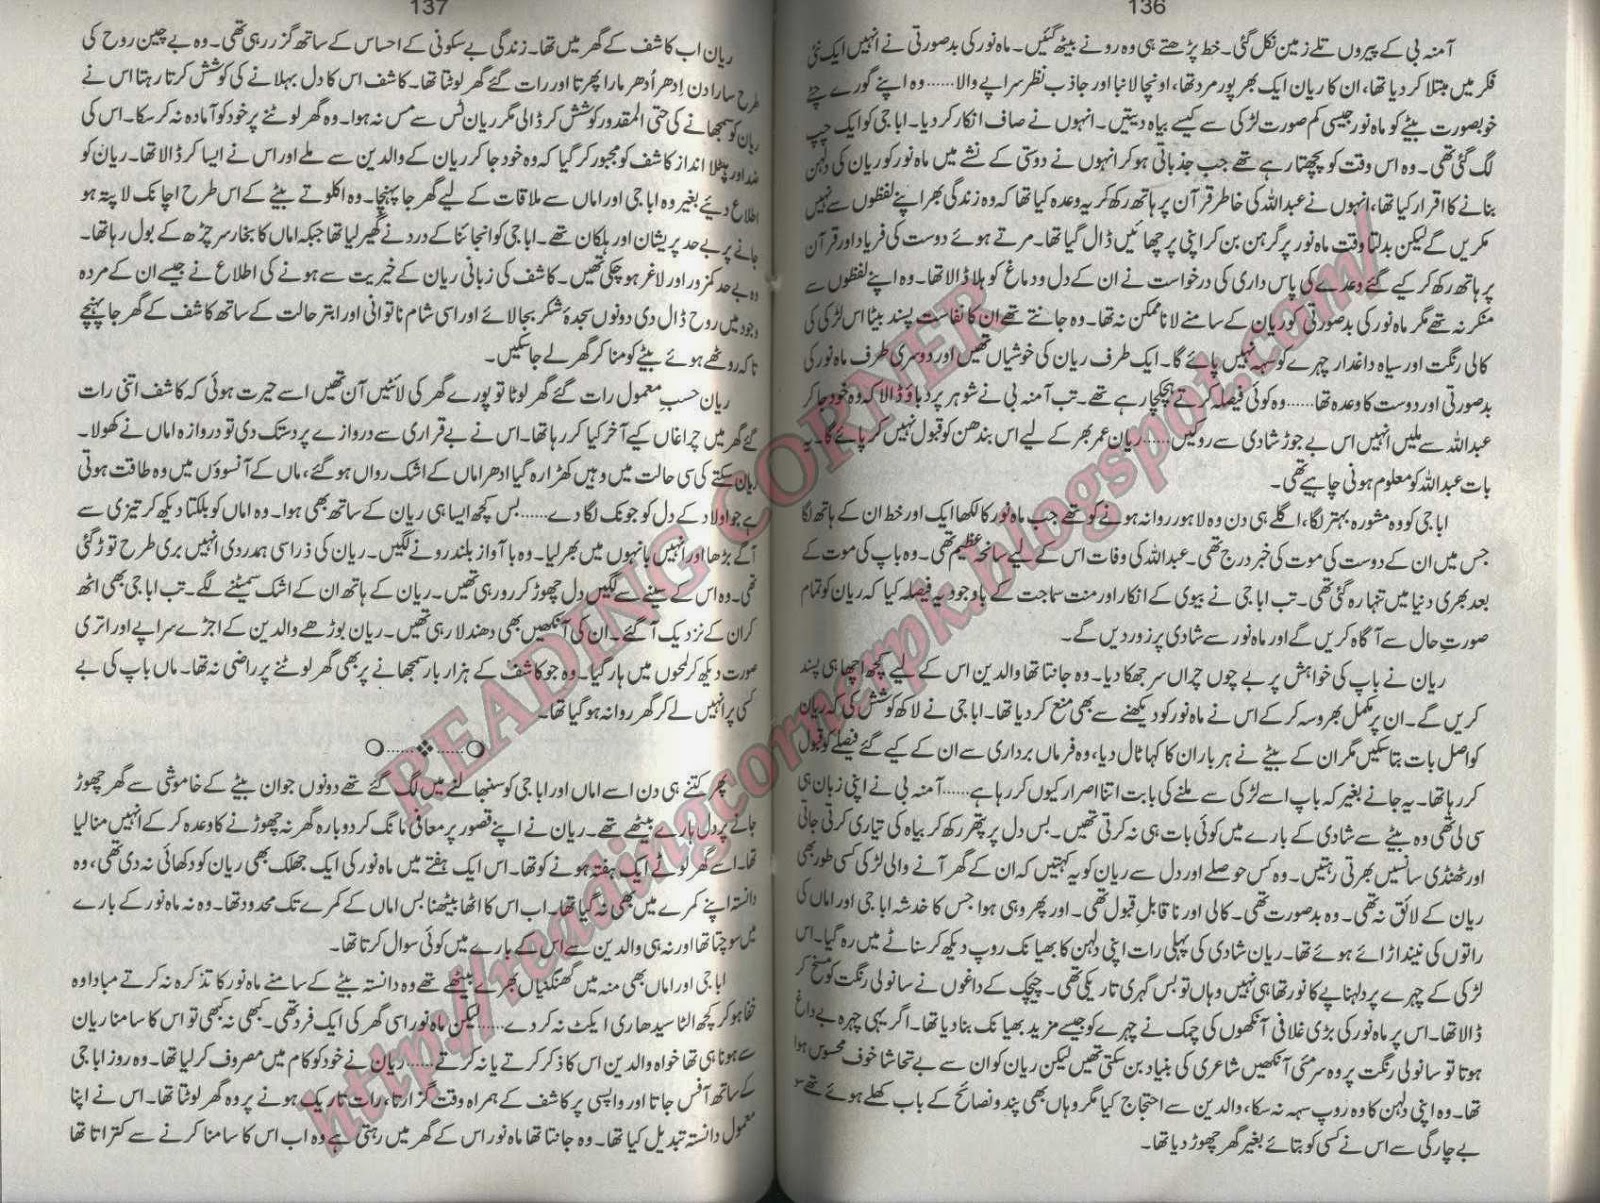 136
آمنہ بی کے پیروں تلے زمین نکل گئی۔ خط پڑھتے ہی وہ رونے بیٹھ گئیں۔ ماہ نور کی بدصورتی نے انہیں ایک نئی
فکر میں مبتلا کر دیا تھا، ان کا ریان ایک بھرپور مرد تھا، اونچا لانبا اور جاذب نظر سراپے والا...... وہ اپنے گورے چٹے
خوبصورت بیٹے کو ماہ نور جیسی کم صورت لڑکی سے کیسے بیاہ دیتیں۔ انہوں نے صاف انکار کر دیا۔ ابا جی کو ایک چپ
لگ گئی تھی۔ وہ اس وقت کو پچھتا رہے تھے جب جذباتی ہو کر انہوں نے دوستی کے نشے میں ماہ نور کو ریان کی دلہن
بنانے کا اقرار کیا تھا، انہوں نے عبداللہ کی خاطر قرآن پر ہاتھ رکھ کر یہ وعدہ کیا تھا کہ وہ زندگی بھر اپنے لفظوں سے نہیں
مکریں گے لیکن بدلتا وقت ماہ نور پر گرہن بن کر اپنی پرچھائیں ڈال گیا تھا۔ مرتے ہوئے دوست کی فریاد اور قرآن
پر ہاتھ رکھ کر کیے گئے وعدے کی پاس داری کی درخواست نے ان کے دل و دماغ کو ہلا ڈالا تھا۔ وہ اپنے لفظوں سے
منکر نہ تھے مگر ماہ نور کی بدصورتی کو ریان کے سامنے لانا ممکن نہ تھا۔ وہ جانتے تھے ان کا نفاست پسند بیٹا اس لڑکی کی
کالی رنگت اور سیاہ داغدار چہرے کو سہہ نہیں پائے گا۔ ایک طرف ریان کی خوشیاں تھیں اور دوسری طرف ماہ نور کی
بدصورتی اور دوست کا وعدہ تھا...... وہ کوئی فیصلہ کرتے ہچکچا رہے تھے۔ تب آمنہ بی نے شوہر پر دباؤ ڈالا کہ وہ خود جا کر
عبداللہ سے ملیں انہیں اس بے جوڑ شادی سے روکیں...... ریان عمر بھر کے لیے اس بندھن کو قبول نہیں کر پائے گا۔ یہ
بات عبداللہ کو معلوم ہونی چاہیے تھی۔
ابا جی کو وہ مشورہ بہتر لگا، اگلے ہی دن وہ لاہور روانہ ہونے کو تھے جب ماہ نور کا لکھا ایک اور خط ان کے ہاتھ لگا
جس میں ان کے دوست کی موت کی خبر درج تھی۔ عبداللہ کی وفات اس کے لیے سانحہ عظیم تھی۔ وہ باپ کی موت کے
بعد بھری دنیا میں تنہا رہ گئی تھی۔ تب ابا جی نے بیوی کے انکار اور منت سماجت کے باوجود یہ فیصلہ کیا کہ ریان کو تمام
صورتِ حال سے آگاہ کریں گے اور ماہ نور سے شادی پر زور دیں گے۔
ریان نے باپ کی خواہش پر بے چوں چراں سر جھکا دیا۔ وہ جانتا تھا والدین اس کے لیے کچھ اچھا ہی پسند
کریں گے۔ ان پر مکمل بھروسہ کر کے اس نے ماہ نور کو دیکھنے سے بھی منع کر دیا تھا۔ ابا جی نے لاکھ کوشش کی کہ ریان
کو اصل بات بتا سکیں مگر ان کے بیٹے نے ہر بار ان کا کہا ٹال دیا، وہ فرماں برداری سے ان کے کیے گئے فیصلے کو قبول
کر رہا تھا۔ یہ جانے بغیر کہ باپ اسے لڑکی سے ملنے کی بابت اتنا اصرار کیوں کر رہا ہے...... آمنہ بی نے اپنی زبان ہی
سی لی تھی وہ بیٹے سے شادی کے بارے میں کوئی بات ہی نہ کرتی تھیں۔ بس دل پر پتھر رکھ کر بیاہ کی تیاری کرتی جاتی
اور ٹھنڈی سانسیں بھرتی رہتیں۔ وہ کس حوصلے اور دل سے ریان کو یہ کہتیں کہ ان کے گھر آنے والی لڑکی کسی طور بھی
ریان کے لائق نہ تھی۔ وہ بدصورت تھی۔ کالی اور ناقابلِ قبول تھی۔ اور پھر وہی ہوا جس کا خدشہ ابا جی اور اماں کی
راتوں کی نیند اڑائے ہوئے تھا۔ ریان شادی کی پہلی رات اپنی دلہن کا بھیانک روپ دیکھ کر سناٹے میں رہ گیا۔ اس
لڑکی کے چہرے پر دلہناپے کا نور تھا ہی نہیں وہاں تو بس گہری تاریکی تھی۔ چیچک کے داغوں نے سانولی رنگت کو مسخ کر
ڈالا تھا۔ اس پر ماہ نور کی بڑی غلافی آنکھوں کی چمک نے چہرے کو جیسے مزید بھیانک بنا دیا تھا۔ اگر یہی چہرہ بے داغ
ہوتا تو سانولی رنگت پر وہ سرمئی آنکھیں شاعری کی بنیاد بن سکتی تھیں لیکن ریان کو ان سے بے تحاشا خوف محسوس ہوا
تھا۔ وہ اپنی دلہن کا وہ روپ سہہ نہ سکا، والدین سے احتجاج کیا مگر وہاں بھی پند و نصائح کے باب کھلے ہوئے تھے سو
بے چارگی سے اس نے کسی کو بتائے بغیر گھر چھوڑ دیا تھا۔
137
ریان اب کاشف کے گھر میں تھا۔ زندگی بے سکونی کے احساس کے ساتھ گزر رہی تھی۔ وہ بے چین روح کی
طرح سارا دن اِدھر اُدھر مارا پھرتا اور رات گئے گھر لوٹتا تھا۔ کاشف اس کا دل بہلانے کی کوشش کرتا رہتا اس نے
ریان کو سمجھانے کی حتی المقدور کوشش کر ڈالی مگر ریان ٹس سے مس نہ ہوا۔ وہ گھر لوٹنے پر خود کو آمادہ نہ کر سکا۔ اس کی
ضد اور ہٹیلا انداز کاشف کو مجبور کر گیا کہ وہ خود جا کر ریان کے والدین سے ملے اور اس نے ایسا کر ڈالا تھا۔ ریان کو
اطلاع دیئے بغیر وہ ابا جی اور اماں سے ملاقات کے لیے گھر جا پہنچا۔ وہ اکلوتے بیٹے کے اس طرح اچانک لاپتہ ہو
جانے پر بے حد پریشان اور ہلکان تھے۔ ابا جی کو انجائنا کے درد نے گھیر لیا تھا جبکہ اماں کا بخار سر چڑھ کے بول رہا تھا۔
وہ بے حد کمزور اور لاغر ہو چکی تھیں۔ کاشف کی زبانی ریان کے خیریت سے ہونے کی اطلاع نے جیسے ان کے مردہ
وجود میں روح ڈال دی دونوں سجدۂ شکر بجا لائے اور اسی شام ناتوانی اور ابتر حالت کے ساتھ کاشف کے گھر جا پہنچے
تاکہ روٹھے ہوئے بیٹے کو منا کر گھر لے جا سکیں۔
ریان حسبِ معمول رات گئے گھر لوٹا تو پورے گھر کی لائٹیں آن تھیں اسے حیرت ہوئی کہ کاشف اتنی رات
گئے گھر میں چراغاں کیے آخر کیا کر رہا تھا۔ اس نے بے قراری سے دروازے پر دستک دی تو دروازہ اماں نے کھولا۔
ریان سکتے کی سی حالت میں وہیں کھڑا رہ گیا ادھر اماں کے اشک رواں ہو گئے، ماں کے آنسوؤں میں وہ طاقت ہوتی
ہے جو اولاد کے دل کو جونک لگا دے...... بس کچھ ایسا ہی ریان کے ساتھ بھی ہوا۔ وہ اماں کو بلکتا دیکھ کر تیزی سے
آگے بڑھا اور انہیں بانہوں میں بھر لیا۔ وہ باآواز بلند رونے لگیں۔ ریان کی ذرا سی ہمدردی انہیں بری طرح توڑ گئی
تھی۔ وہ اس کے سینے سے لگیں دل چھوڑ کر رو رہی تھیں۔ ریان کے ہاتھ ان کے اشک سمیٹنے لگے۔ تب ابا جی بھی اٹھ
کر ان کے نزدیک آ گئے۔ ان کی آنکھیں بھی دھندلا رہی تھیں۔ ریان بوڑھے والدین کے اجڑے سراپے اور اتری
صورت دیکھ کر لمحوں میں ہار گیا۔ وہ جو کاشف کے ہزار بار سمجھانے پر بھی گھر لوٹنے پر راضی نہ تھا۔ ماں باپ کی بے
کسی پر انہیں لے کر گھر روانہ ہو گیا تھا۔
پھر کتنے ہی دن اسے اماں اور ابا جی کو سنبھالنے میں لگ گئے تھے دونوں جوان بیٹے کے خاموشی سے گھر چھوڑ
جانے پر دل ہارے بیٹھے تھے۔ ریان نے اپنے قصور پر معافی مانگ کر دوبارہ گھر نہ چھوڑنے کا وعدہ کر کے انہیں منا لیا
تھا۔ اسے گھر لوٹے ایک ہفتہ ہونے کو تھا۔ اس ایک ہفتے میں ماہ نور کی ایک جھلک بھی ریان کو دکھائی نہ دی تھی، وہ
دانستہ اپنے کمرے میں بھی نہ گیا تھا۔ اب اس کا اٹھنا بیٹھنا بس اماں کے کمرے تک محدود تھا۔ وہ نہ ماہ نور کے بارے
میں سوچتا تھا اور نہ ہی والدین سے اس کے بارے میں کوئی سوال کرتا تھا۔
ابا جی اور اماں بھی منہ میں گھنگنیاں بھرے بیٹھے تھے وہ دانستہ بیٹے کے سامنے ماہ نور کا تذکرہ نہ کرتے مبادا وہ
خفا ہو کر کچھ الٹا سیدھا ری ایکٹ نہ کر دے...... لیکن ماہ نور اسی گھر کی ایک فرد تھی۔ کبھی نہ کبھی تو اس کا سامنا ریان
سے ہونا ہی تھا خواہ والدین اس کا ذکر کرتے یا نہ کرتے...... ریان نے خود کو کام میں مصروف کر لیا تھا۔ وہ روز ابا جی
کے ساتھ آفس جاتا اور واپسی پر کاشف کے ہمراہ وقت گزارتا، رات تاریک ہونے پر وہ گھر لوٹتا تھا۔ اس نے اپنا
معمول دانستہ تبدیل کیا تھا۔ وہ جانتا تھا ماہ نور اس کے گھر میں رہتی ہے وہ اب اس کا سامنا کرنے سے کتراتا تھا
READING CORNER
http://readingcornerpk.blogspot.com/